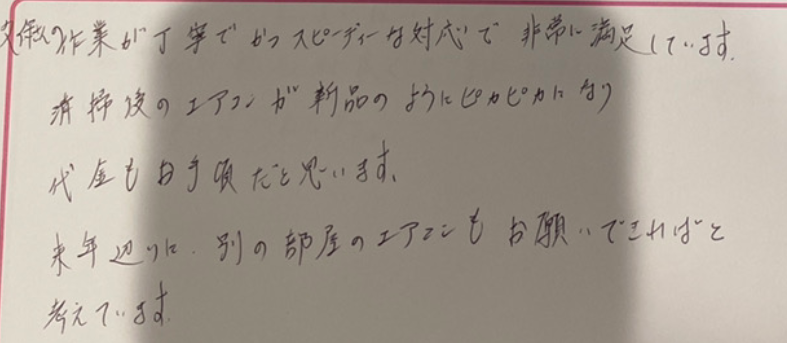 の作業が丁寧でかつスピーディーな対応で非常に満足しています。
清掃後のエアコンが新品のようにピカピカになり
代金もお手頃だと思います。
来年辺りに、別の部屋のエアコンもお願いできればと
考えています。